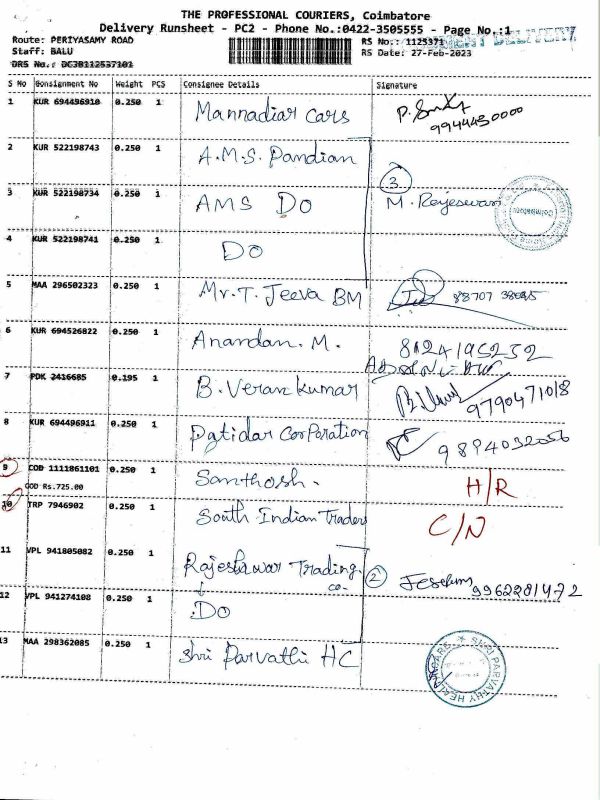 THE PROFESSIONAL COURIERS, Coimbatore
Delivery Runsheet - PC2 - Phone No.:0422-3505555 - Page No.:1
Route: PERIYASAMY ROAD
RS No.: 1125371
Staff: BALU
RS Date: 27-Feb-2023
DRS No.: DC3B112537101
S No Consignment No Weight PCS Consignee Details Signature
1 KUR 694496910 0.250 1 Mannadiar cars
9944450000
2 KUR 522198743 0.250 1 A.M.S. Pandian
3
3 KUR 522198734 0.250 1 AMS DO M. Rajeswari
4 KUR 522198741 0.250 1 DO
5 MAA 296502323 0.250 1 Mr. T. Jeeva BM 88707
6 KUR 694526822 0.250 1 Anandan. M. 8124195252
7 PDK 2416685 0.195 1 B. Veran kumar 9790471018
8 KUR 694496911 0.250 1 Patidar Corporation 9894032056
9 COD 1111861101 0.250 1 Santhosh. H/R
COD Rs.725.00
10 TRP 7946902 0.250 1 South Indian Traders C/N
11 VPL 941805082 0.250 1 Rajeshawar Trading. co. 2 9962281472
12 VPL 941274108 0.250 1 DO
13 MAA 298362085 0.250 1 Shri Parvathi HC
SHRI PARVATHY HEALTHCARE